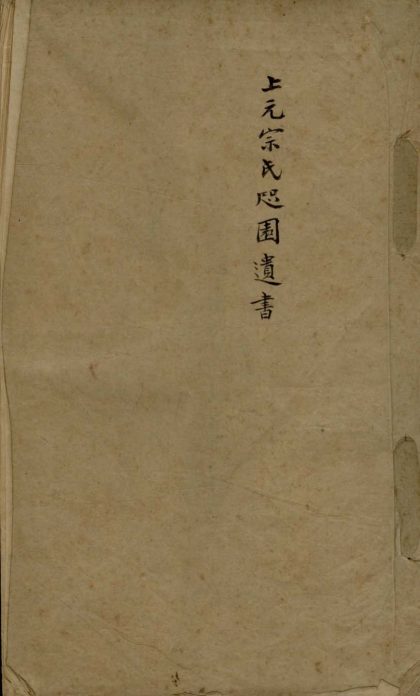 上元宗氏咫園遺書